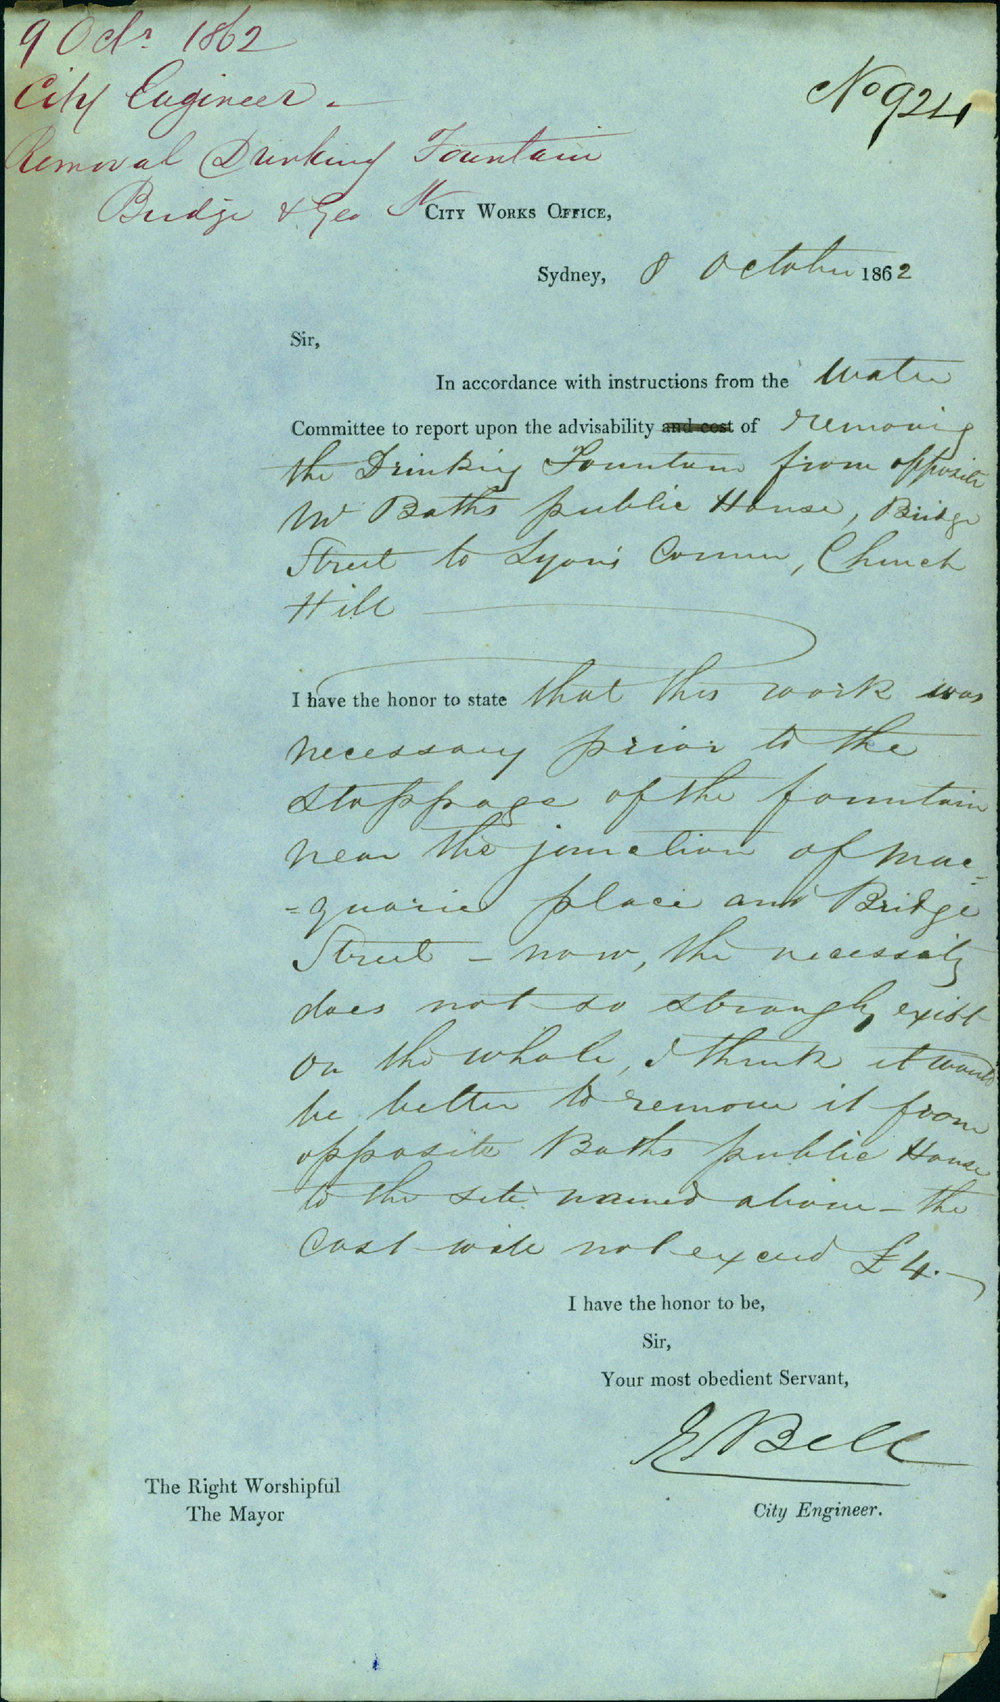 9 Octr 1862
City Engineer -
Removal Drinking Fountain
Bridge & Geo St
No 924
City Works Office,
Sydney, 8 October 1862
Sir,
In accordance with instructions from the Water
Committee to report upon the advisability and cost of removing
the Drinking Fountain from opposite
Mr Baths public House, Bridge
Street to Lyons Corner, Church
Hill
I have the honor to state that this work was
necessary prior to the
stoppage of the fountain
near the junction of Mac=
=quarie place and Bridge
Street - now, the necessity
does not so strongly exist
On the whole, I think it would
be better to remove it from
opposite Baths public House
to the site named above - the
cost will not exceed £4. -
I have the honor to be,
Sir,
Your most obedient Servant,
E Bell
City Engineer.
The Right Worshipful
The Mayor